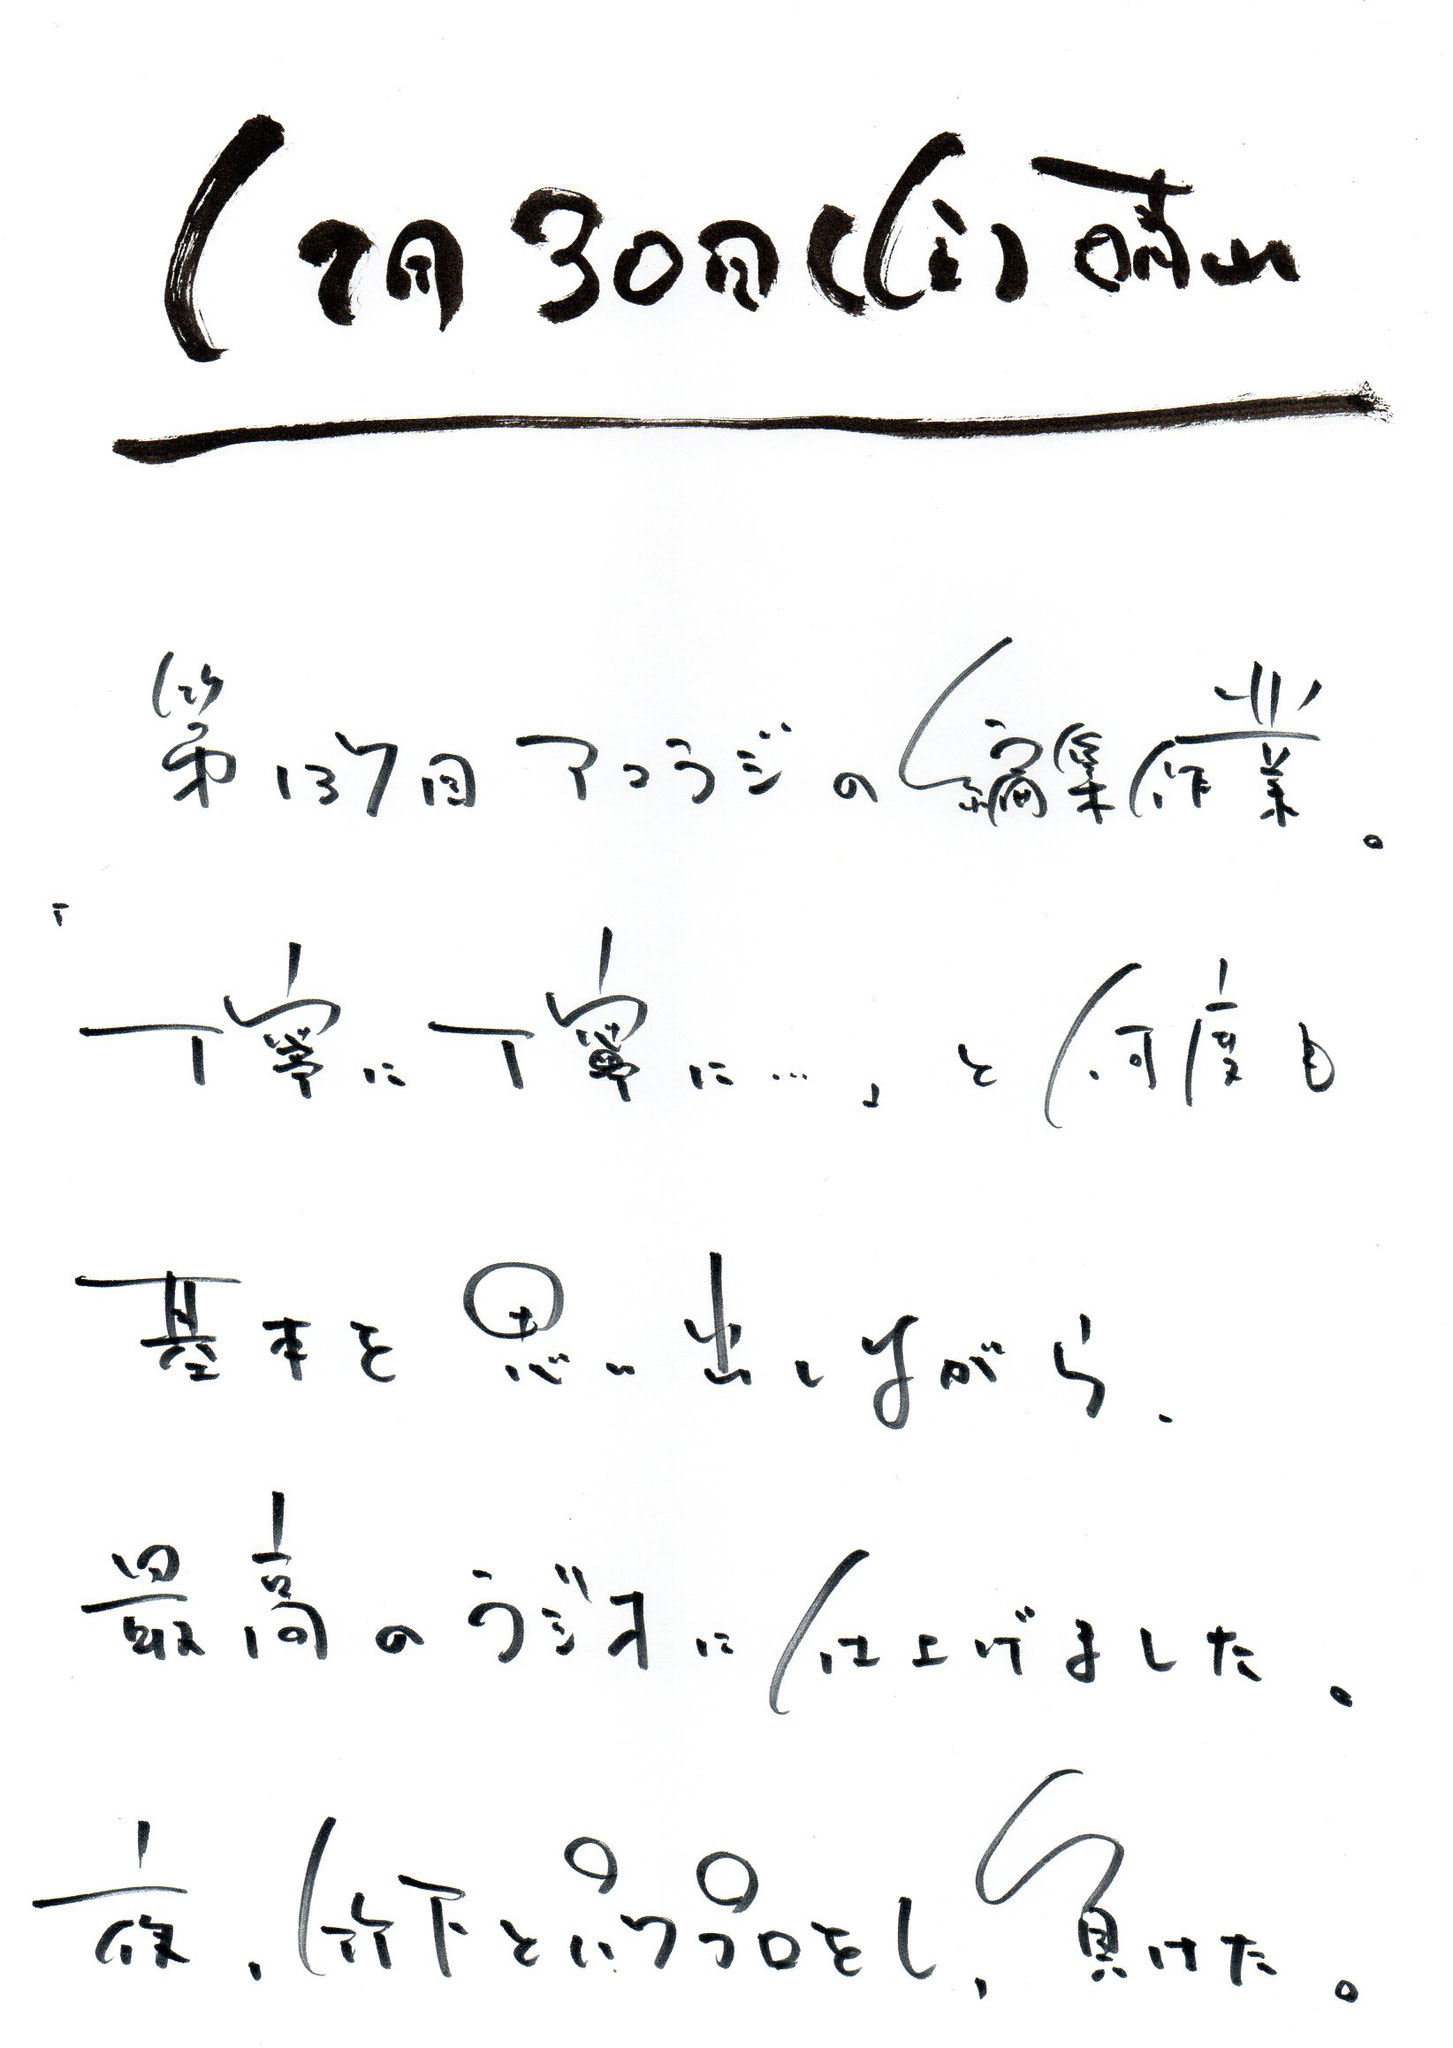 12月30日(金) 晴れ
第137回アコラジの編集作業。
「丁寧に丁寧に…」と何度も
基本を思い出しながら、
最高のラジオに仕上げました。
夜、竹下とパワプロをし、負けた。